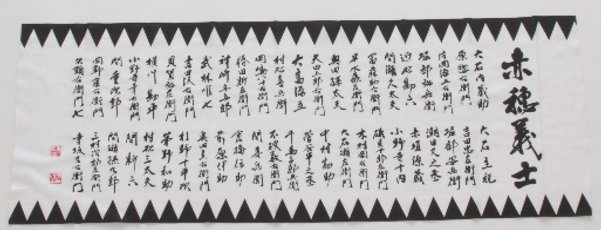 赤穂義士
大石内蔵助
原惣右衛門
片岡源五右衛門
堀部弥兵衛
近松勘六
間瀬久太夫
富森助右衛門
早水藤左衛門
奥田孫太夫
矢田五郎右衛門
大高源五
村松喜兵衛
岡嶋八十右衛門
勝田新左衛門
神崎与五郎
武林唯七
吉田沢右衛門
貝賀弥左衛門
横川勘平
小野寺幸右衛門
間重次郎
岡野金右衛門
矢頭右衛門七
大石主税
吉田忠左衛門
堀部安兵衛
潮田又之丞
赤埴源蔵
小野寺十内
磯貝十郎左衛門
木村岡右衛門
大石瀬左衛門
中村勘助
菅谷半之丞
千馬三郎兵衛
不破数右衛門
間喜兵衛
倉橋伝助
前原伊助
奥田貞右衛門
杉野十平次
茅野和助
村松三太夫
間新六
間瀬孫九郎
三村次郎左衛門
寺坂吉右衛門